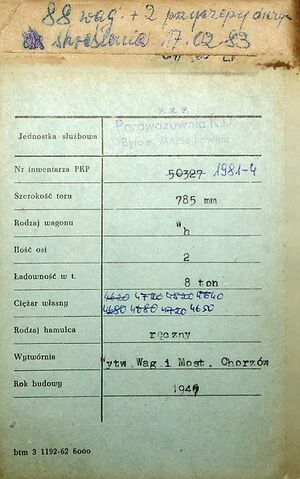 88 wag. + 2 przyczepy
skreślenia 17.02-83
P. K. P.
Jednostka służbowa Parowozownia
Bytom
Nr inwentarza PKP 50327 1981-4
Szerokość toru 785 mm
Rodzaj wagonu Wh
Ilość osi 2
Ładowność w t. 8 ton
Ciężar własny 4620 4720 4520 4640
4680 4680 4720 4650
Rodzaj hamulca ręczny
Wytwórnia Wytw. Wag i Most. Chorzów
Rok budowy
btm 3 1192-62 6000